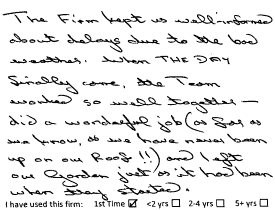 The Firm kept us well-informed
about delays due to the bad
weather. When THE DAY
finally came, the Team
worked so well together -
did a wonderful job (as far as
we know, as we have never been
up on our Roof!!) and left
our Garden just as it had been
when they started.
I have used this firm: 1st Time ☑ <2 yrs ☐ 2-4 yrs ☐ 5+ yrs ☐